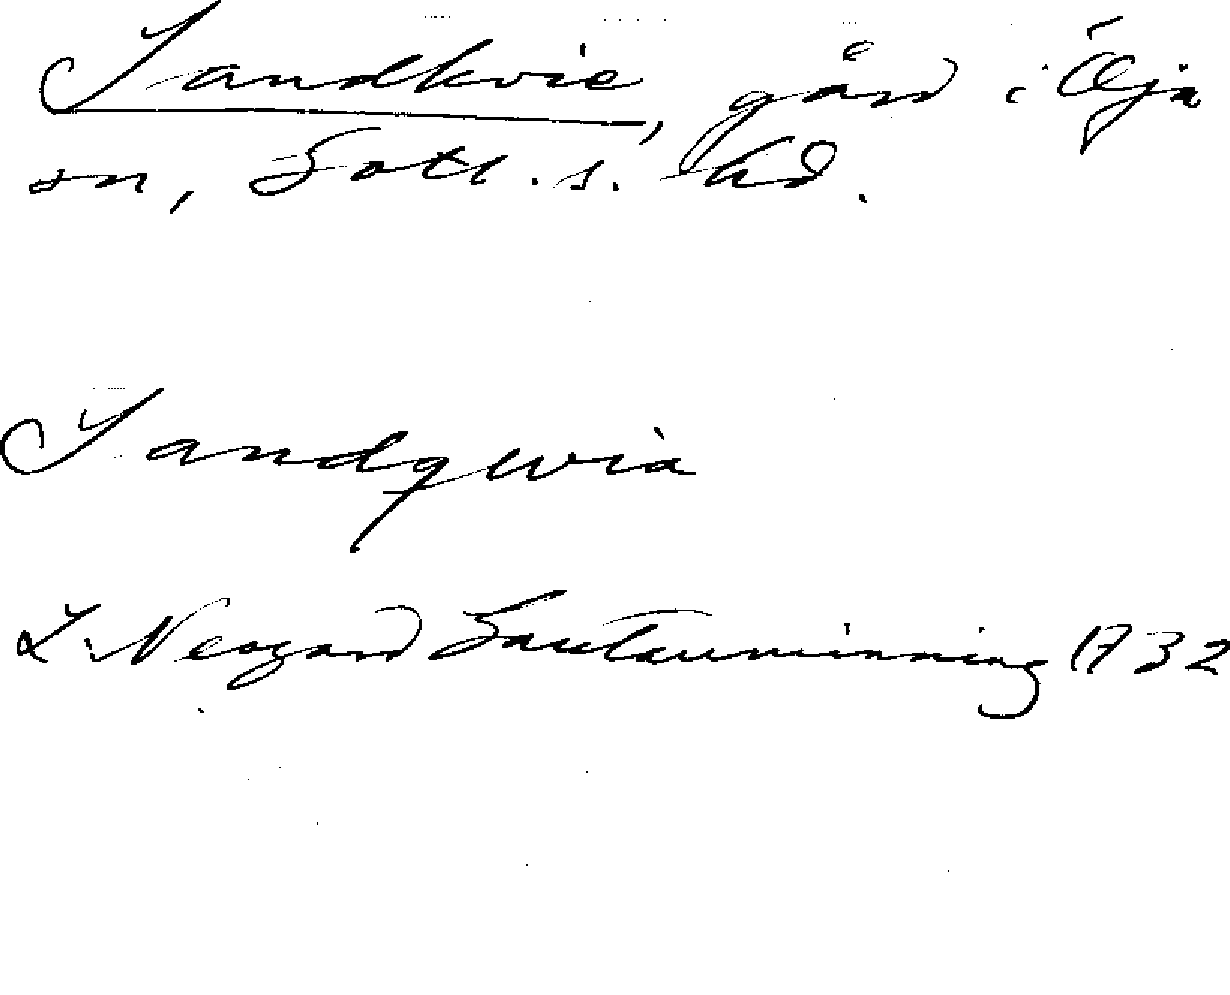 Sandkvie, gård i Öja
sn, Gotl. s. hd.
Sandqwia
L. Neogard Gautauminning 1732